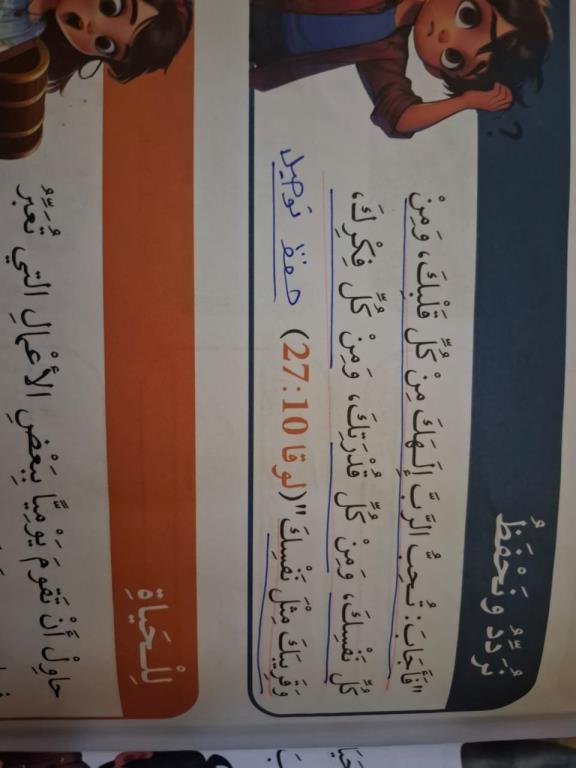 نُرَدِّدُ وَنَحْفَظُ
"فَأَجَابَ: تُحِبُّ الرَّبَّ إِلَهَكَ مِنْ كُلِّ قَلْبِكَ، وَمِنْ
كُلِّ نَفْسِكَ، وَمِنْ كُلِّ قُدْرَتِكَ، وَمِنْ كُلِّ فِكْرِكَ،
وَقَرِيبَكَ مِثْلَ نَفْسِكَ" (لوقا 27:10) حفظ توصيل
لِلْحَيَاةِ
حاوِلْ أَنْ تَقومَ يَوْمِيًّا بِبَعْضِ الأَعْمالِ التي تُعَبِّرُ